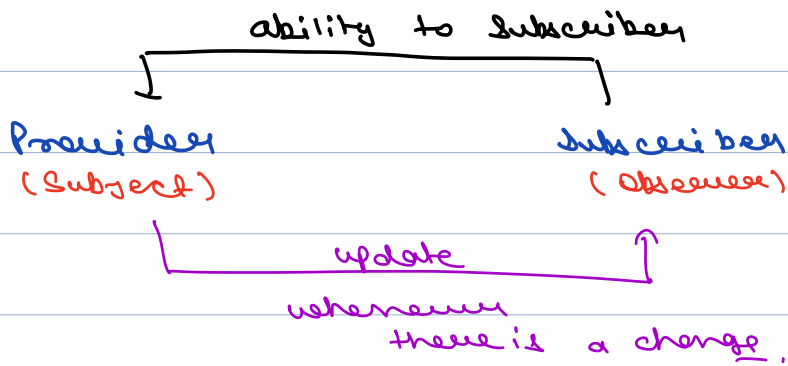 ability to Subscriber
Provider Subscriber
(Subject) (Observer)
update
whenever
there is a change.